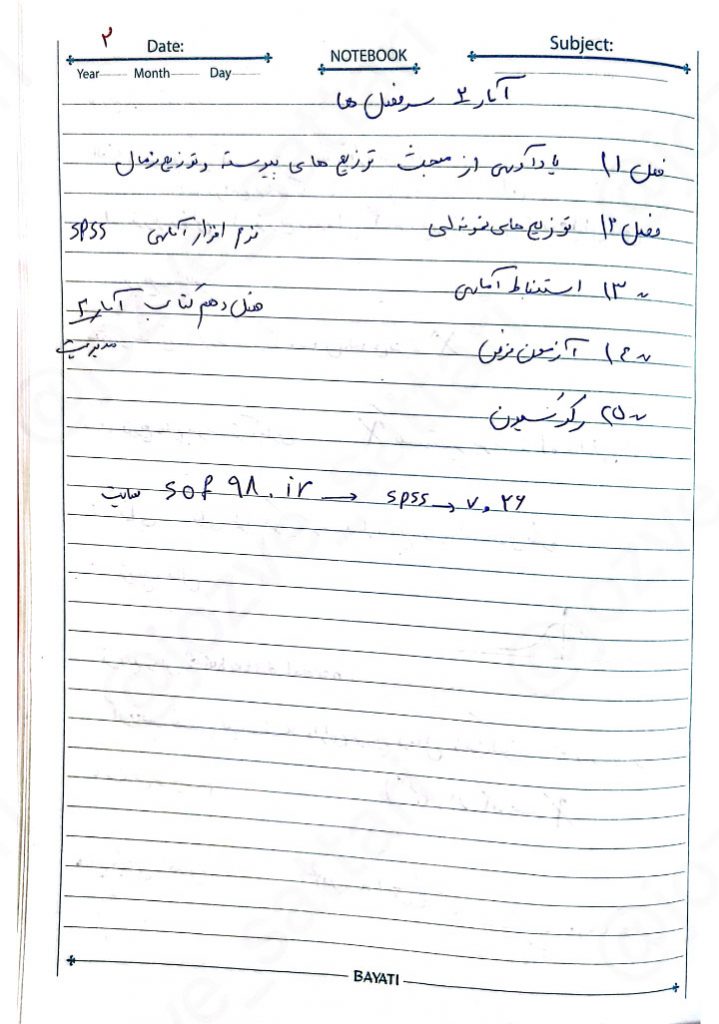 ۲
Date:
NOTEBOOK
Subject:
Year Month Day
آمار ۲ سرفصل ها
فصل ۱) یادآوری از مبحث توزیع های پیوسته و توزیع نرمال
فصل ۲) توزیع های نمونه ای نرم افزار آماری SPSS
~ ۳) استنباط آماری
فصل دهم کتاب آمار ۲
~ ۴) آزمون فرض مدیریت
~ ۵) رگرسیون
سایت sof ۹۸.ir → SPSS → v.۲۶
BAYATI